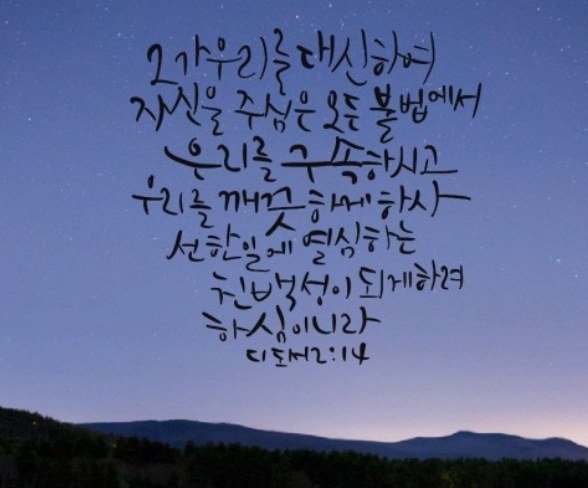 그가우리를대신하여
자신을 주심은 모든 불법에서
우리를 구속하시고
우리를 깨끗하게 하사
선한일에 열심하는
친백성이 되게하려
하심이니라
디도서2:14